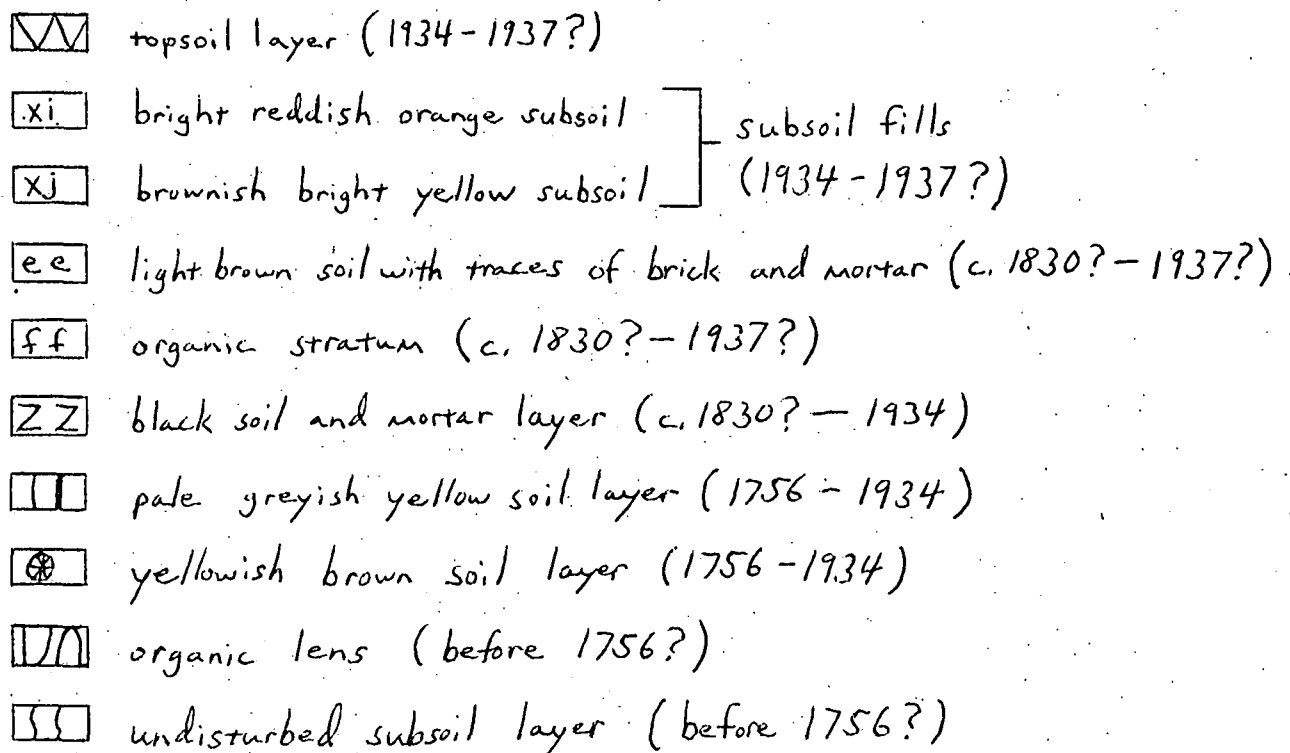 topsoil layer (1934-1937?)
xi bright reddish orange subsoil
subsoil fills
(1934-1937?)
xj brownish bright yellow subsoil
ee light brown soil with traces of brick and mortar (c. 1830?-1937?)
ff organic stratum (c. 1830?-1937?)
ZZ black soil and mortar layer (c. 1830? - 1934)
pale greyish yellow soil layer (1756 - 1934)
yellowish brown soil layer (1756-1934)
organic lens (before 1756?)
undisturbed subsoil layer (before 1756?)